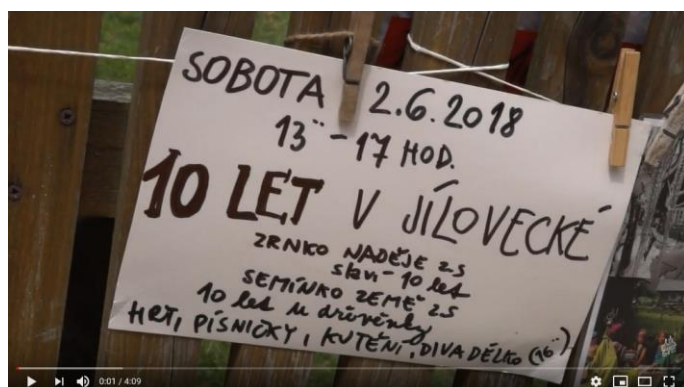 SOBOTA 2.6.2018
13¨ - 17 HOD.
10 LET V JÍLOVECKÉ
ZRNKO NADĚJE ZS
slaví - 10 let
SEMÍNKO ZEMĚ ZS
10 let u dřevěnky
HRY, PÍSNIČKY, KUTĚNÍ, DIVADÉLKO (16¨)
0:01 / 4:09